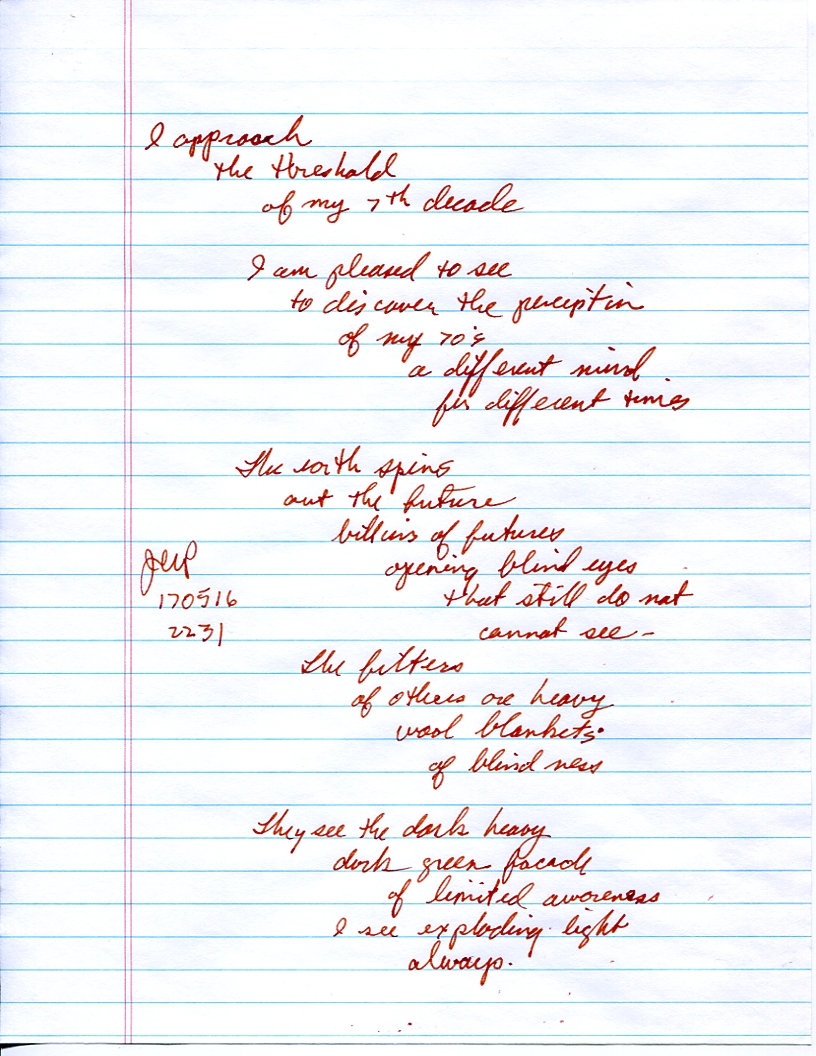 I approach
the threshold
of my 7th decade
I am pleased to see
to discover the perception
of my 70's
a different mind
for different times
The earth spins
out the future
billions of futures
opening blind eyes
that still do not
cannot see -
JWP
170516
2231
The filters
of others are heavy
wool blankets
of blindness
They see the dark heavy
dark green facade
of limited awareness
I see exploding light
always.